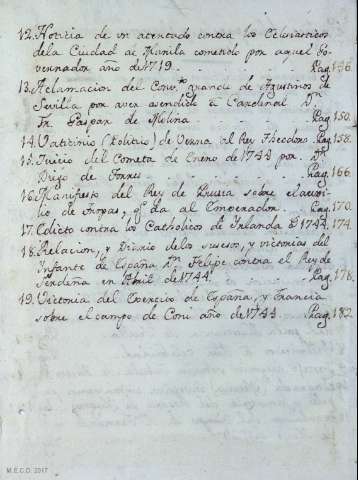 12. Noticia de un atentado contra los Eclesiasticos
dela Ciudad de Manila cometido por aquel Go-
vernador año de 1719. Pag. 136.
13. Aclamacion del Conv.to grande de Agustinos de
Sevilla por aver asendido a Cardenal Dn
Fr. Gaspar de Molina Pag. 150.
14. Vaticinio (Politico) de Verna al Rey Theodoro. Pag. 158.
15. Juicio del Cometa de Enero de 1744 por Dn
Diego de Torres Pag. 166.
16. Manifiesto del Rey de Prusia sobre el auxi-
lio de Tropas, q.e da al Emperador. Pag. 170.
17. Edicto contra los Catholicos de Irlanda 1744. 174.
18. Relacion, y Diario delos sucesos, y victorias del
Infante de España Dn Felipe contra el Rey de
Serdeña en Abril de 1744. Pag. 178.
19. Victoria del Exercito de España, y Francia
sobre el campo de Coni año de 1744. Pag. 182.
M.E.C.D. 2017